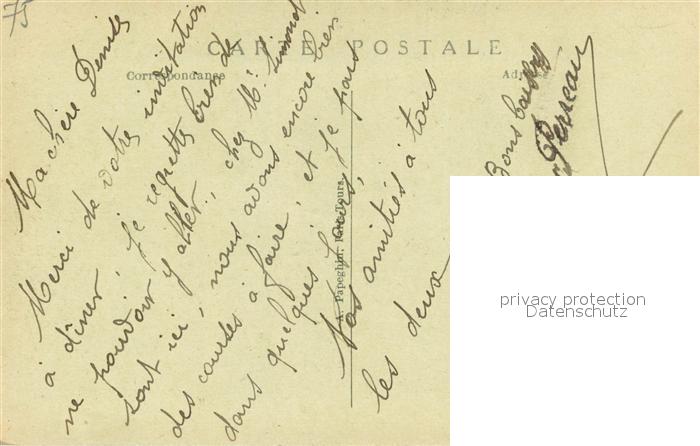 75
CARTE POSTALE
Correspondance
Adresse
A. Papeghin, Paris-Tours
Ma chère Denise
Merci de votre invitation
à dîner, je regrette bien de
ne pouvoir y aller, chez Mr Simonet
sont ici, nous avons encore bien
des courses à faire, et je pars
dans quelques jours,
Nos amitiés à tous
les deux
Bons baisers
privacy protection
Datenschutz